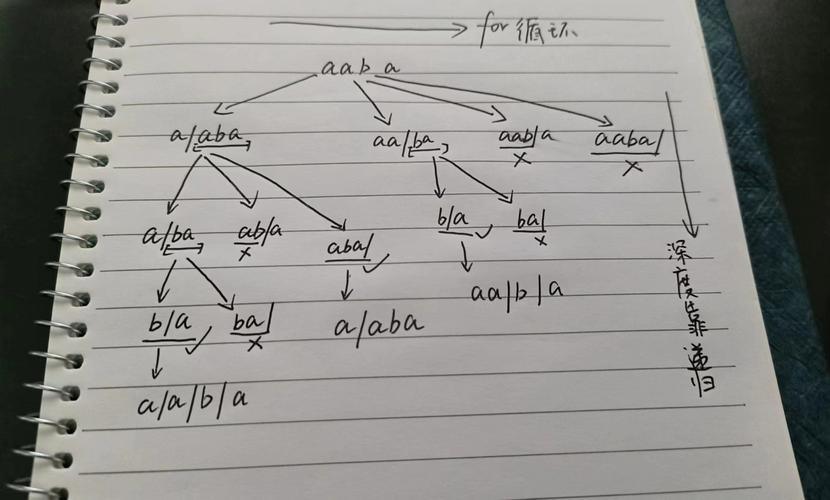 for 循环
aaba
a/aba aa/ba aab/a aaba/
x x
a/ba ab/a aba/ b/a ba/
x x
b/a ba/ a/aba aa/b/a
x
a/a/b/a
深度靠递归